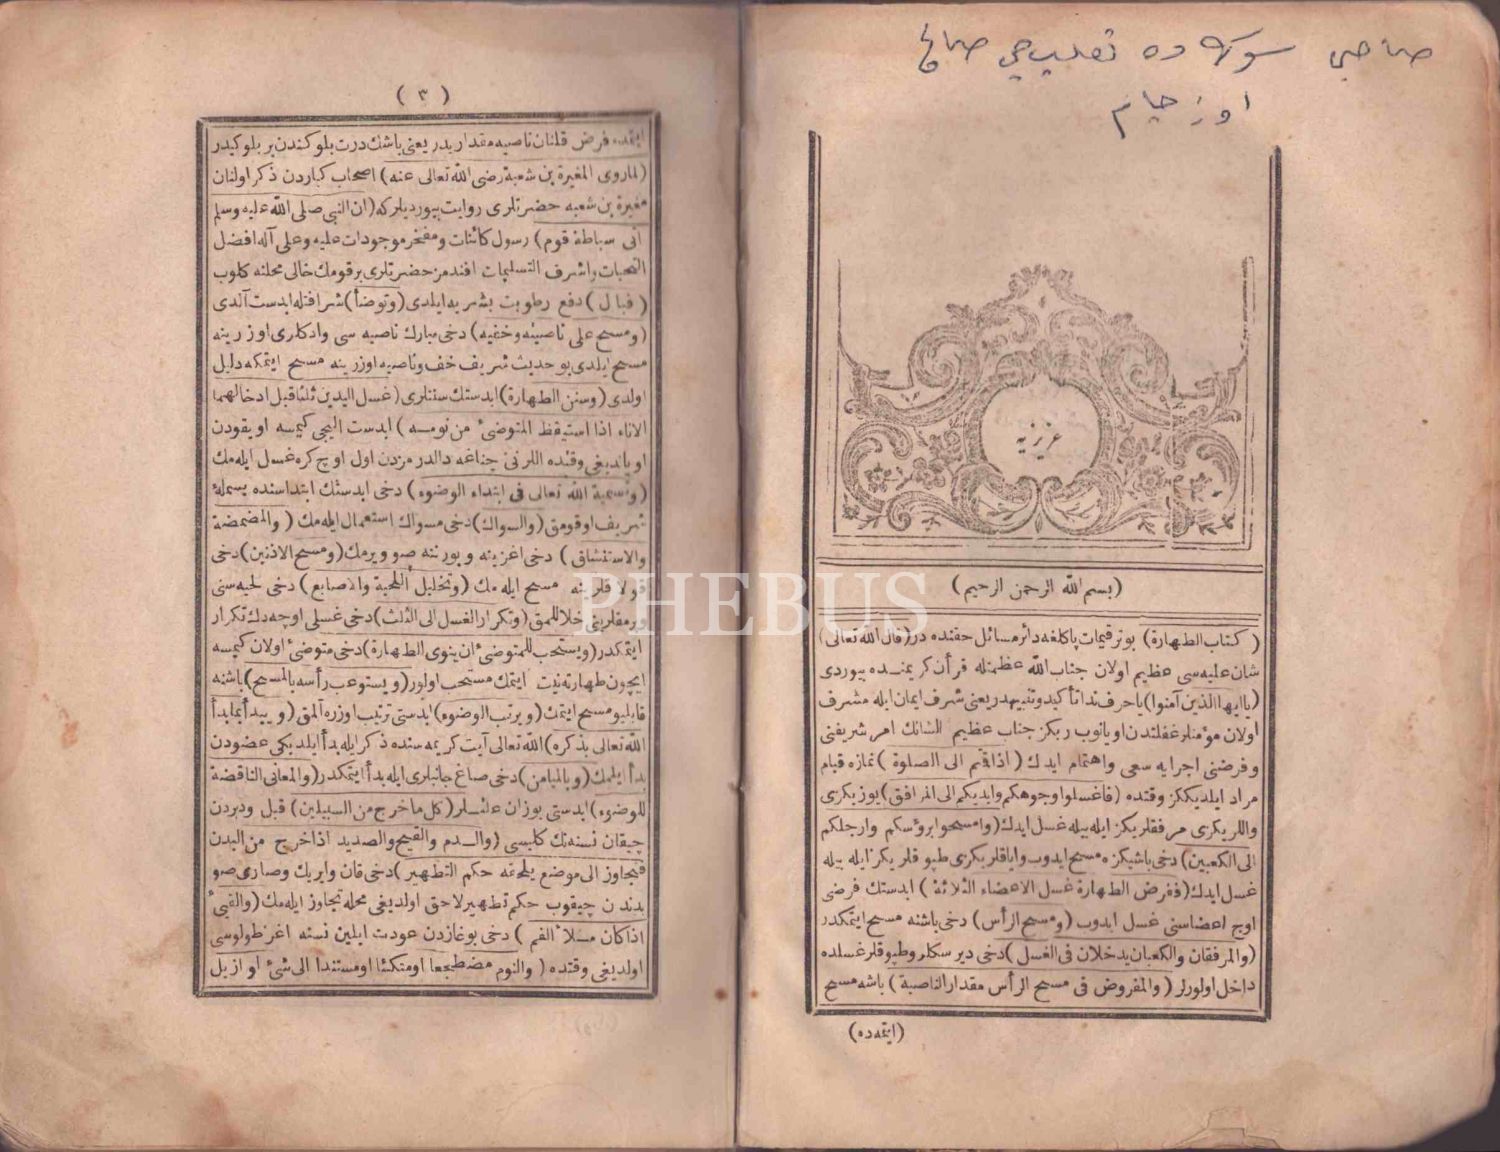 صاحبی سوكه ده
عزیزیه
(بسم الله الرحمن الرحیم)
(كتاب الطهارة) بوترقیمات پاكلغه دائر مسائل حقنده در (قال الله تعالی)
شان علیه سی عظیم اولان جناب الله عظمتله قرآن كریمنده بیوردی
(یا ایها الذین آمنوا) یا حرف ندا تأكید و تنبیهدر یعنی شرف ایمان ایله مشرف
اولان مؤمنلر غفلتدن اویانوب ربكز جناب عظیم الشانك امر شریفنی
و فرضنی اجرایه سعی واهتمام ایدك (اذا قتم الی الصلوة) نمازه قیام
مراد ایلدیككز وقتده (فاغسلوا وجوهكم وایدیكم الی المرافق) یوزیكزی
واللریكزی مرفقلریكز ایله بیله غسل ایدك (وامسحوا برؤسكم وارجلكم
الی الكعبین) دخی باشیكزه مسح ایدوب وایاقلریكزی طپوقلریكز ایله بیله
غسل ایدك (ففرض الطهارة غسل الاعضاء الثلاثة) ابدستك فرضی
اوچ اعضاسنی غسل ایدوب (ومسح الرأس) دخی باشنه مسح ایتمكدر
(والمرفقان والكعبان یدخلان فی الغسل) دخی دیرسكلر وطپوقلر غسلده
داخل اولورلر (والمفروض فی مسح الرأس مقدار الناصیة) باشه مسح
(ایتمه ده)
(٣)
ایتمده فرض قلنان ناصیه مقداریدر یعنی باشك درت بلوكندن بر بلوكیدر
(لماروی المغیرة بن شعبة رضی الله تعالی عنه) اصحاب كباردن ذكر اولنان
مغیرة بن شعبه حضرتلری روایت بیوردیلركه (ان النبی صلی الله علیه وسلم
اتی سباطة قوم) رسول كائنات ومفخر موجودات علیه وعلی آله افضل
التحیات واشرف التسلیمات افندمز حضرتلری بر قومك خالی محلنه كلوب
(فبال) دفع رطوبت بشریه ایلدی (وتوضأ) شرافتله ابدست آلدی
(ومسح علی ناصیته وخفیه) دخی مبارك ناصیه سی وادكلری اوزرینه
مسح ایلدی بو حدیث شریف خف وناصیه اوزرینه مسح ایتمكه دلیل
اولدی (وسنن الطهارة) ابدستك سنتلری (غسل الیدین ثلثا قبل ادخالهما
الاناء اذا استیقظ المتوضئ من نومه) ابدست الیجی كیمسه اویقودن
اویاندیغی وقتده اللرنی چناغه دالدرمزدن اول اوچ كره غسل ایله مك
(وتسمیة الله تعالی فی ابتداء الوضوء) دخی ابدستك ابتداسنده بسمله
شریف اوقومق (والسواك) دخی مسواك استعمال ایله مك (والمضمضة
والاستنشاق) دخی اغزینه وبورننه صو ویرمك (ومسح الاذنین) دخی
قولاقلرینه مسح ایله مك (وتخلیل اللحیة والاصابع) دخی لحیه سنی
وپرمقلرینی خلاللمق (وتكرار الغسل الی الثلث) دخی غسلی اوچه دك تكرار
ایتمكدر (ویستحب للمتوضئ ان ینوی الطهارة) دخی متوضئ اولان كیمسه
ایچون طهارته نیت ایتمك مستحب اولور (ویستوعب رأسه بالمسح) باشنه
قابلیو مسح ایتمك (ویرتب الوضوء) ابدستی ترتیب اوزره آلمق (ویبدأ بما بدأ
الله تعالی بذكره) الله تعالی آیت كریمه سنده ذكر ایله بدأ ایلدیكی عضودن
بدأ ایلمك (وبالمیامن) دخی صاغ جانبلری ایله بدأ ایتمكدر (والمعانی الناقضة
للوضوء) ابدستی بوزان علتلر (كل ما خرج من السبیلین) قبل ودبردن
چیقان نسنه نك كلیسی (والدم والقیح والصدید اذا خرج من البدن
فتجاوز الی موضع یلحقه حكم التطهیر) دخی قان وایرنك وصاری صو
بدندن چیقوب حكم تطهیر لاحق اولدیغی محله تجاوز ایله مك (والقیئ
اذا كان ملأ الفم) دخی بوغازدن عودت ایلین نسنه اغز طولوسی
اولدیغی وقتده (والنوم مضطجعا او متكئا او مستندا الی شئ لو ازیل
PHEBUS